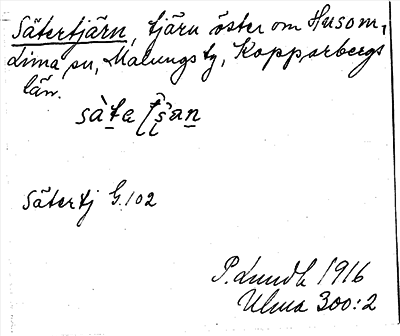 Sätertjärn, tjärn öster om Husom,
Lima sn, Malungs tg, Kopparbergs
län.
Sätertj G. 102
P. Lundh 1916
Ulma 300:2